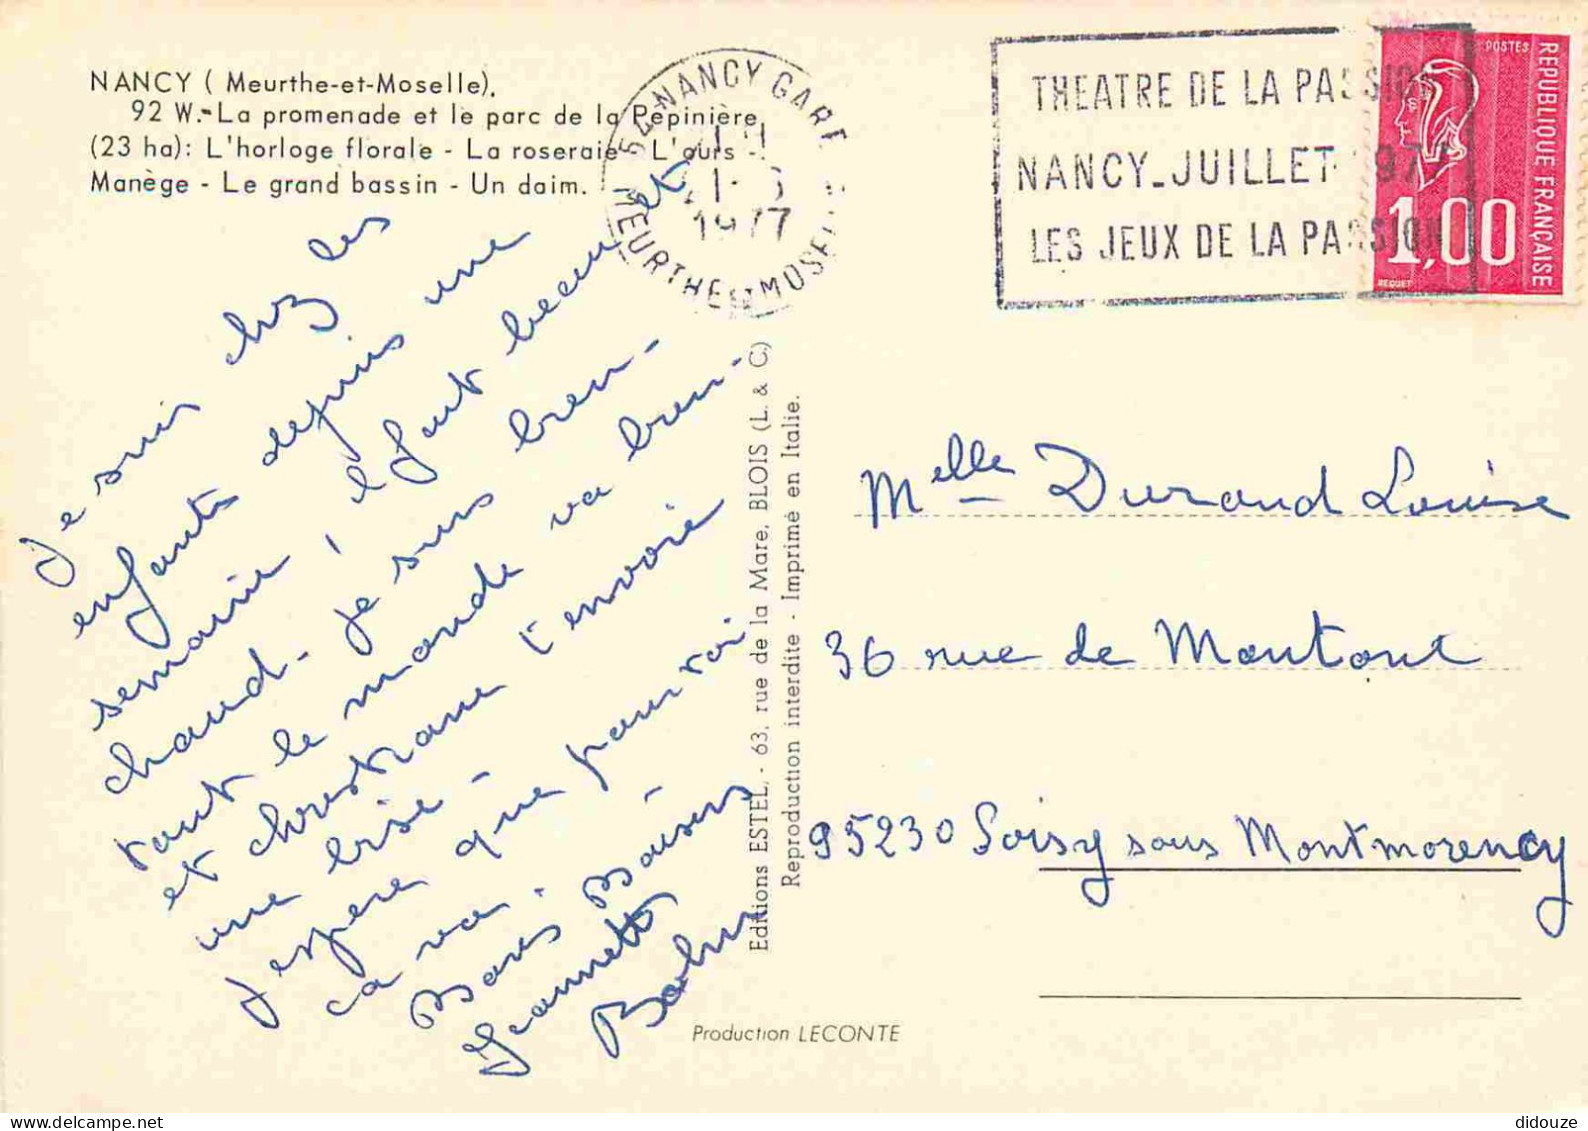 NANCY ( Meurthe-et-Moselle).
92 W.-La promenade et le parc de la Pépinière
(23 ha): L'horloge florale - La roseraie - L'ours -
Manège - Le grand bassin - Un daim.
54-NANCY GARE
1977
MEURTHE ET MOSELLE
THEATRE DE LA PASSION
NANCY-JUILLET 1977
LES JEUX DE LA PASSION
POSTES
REPUBLIQUE FRANCAISE
1,00
BEQUET
Je suis chez les
enfants depuis une
semaine il fait beau et
chaud - je suis bien -
tout le monde va bien -
et christiane t'envoie
une bisé -
J'espère que pour toi
ça va.
Bons Baisers
Jeannette
Editions ESTEL, - 63, rue de la Mare, BLOIS (L. & C.)
Reproduction interdite - Imprimé en Italie.
Melle Durand Louise
36 rue de Montont
95230 Soisy sous Montmorency
Production LECONTE
www.delcampe.net
didouze